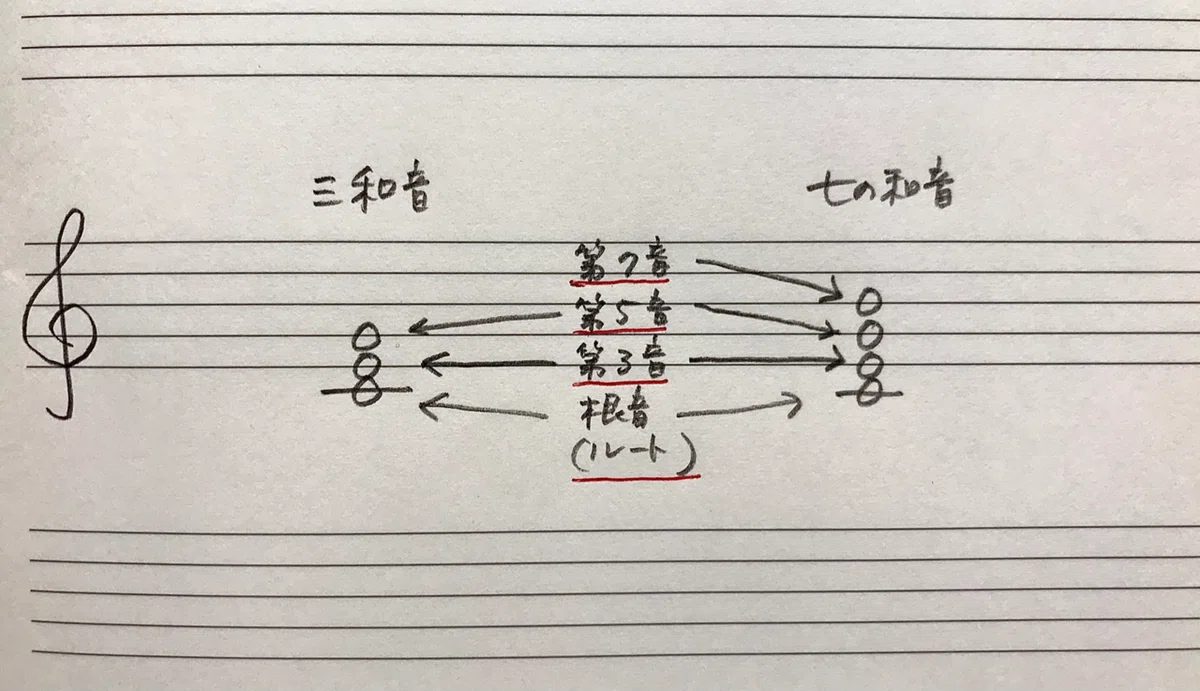 三和音
七の和音
第7音
第5音
第3音
根音
(ルート)